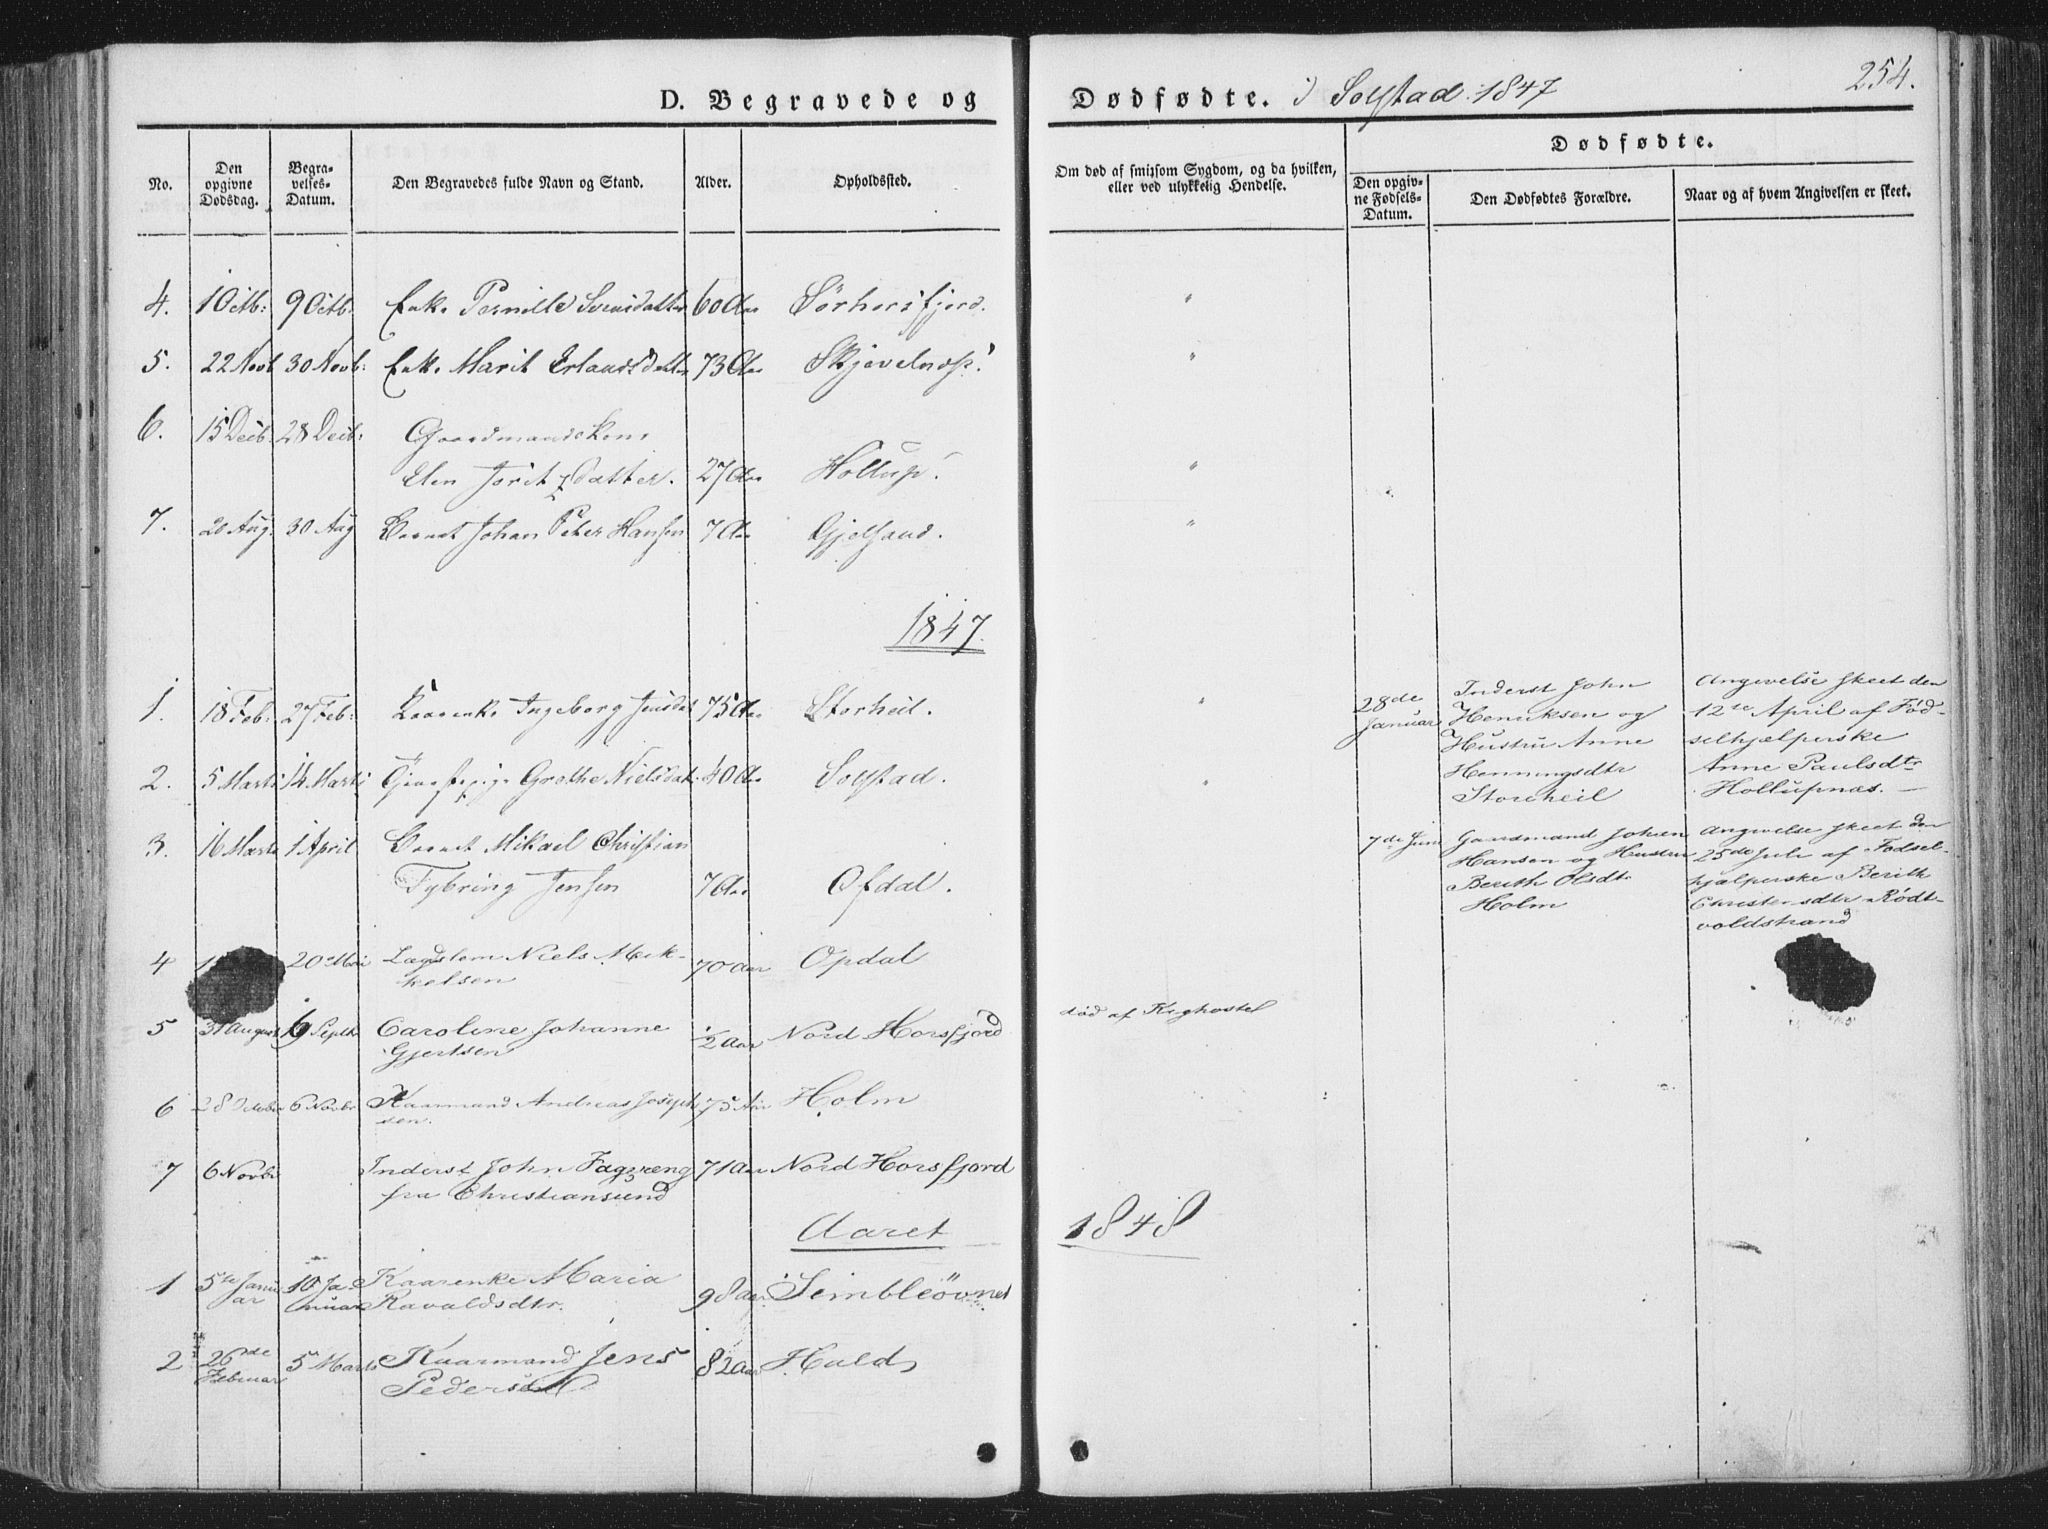 254.
D. Begravede og Dødfødte. i Solstad 1847
Dødfødte.
No. Den opgivne Dødsdag. Begravelses-Datum. Den Begravedes fulde Navn og Stand. Alder. Opholdssted. Om død af smitsom Sygdom, og da hvilken, eller ved ulykkelig Hendelse. Den opgivne Fødsels-Datum. Den Dødfødtes Forældre. Naar og af hvem Angivelsen er skeet.
4. 1 Octb: 9 Octb: Enke Pernille Svensdatter 60 Aar Sørhorsfjord. "
5. 22 Novb 30 Novb: Enke Marit Erlandsdatter 73 Aar Skjevelnæs. "
6. 15 Decb. 28 Decb: Gaardmandskone
Elen datter. 27 Aar Hollup. "
7. 20 Aug. 30 Aug Barnet Johan Peter Hansen 7 Aar Gjelsand. "
1847.
1. 18 Feb: 27 Feb: Kaarenke Ingeborg Jensdat 75 Aar Storheil. "
2. 5 Marti 14 Marti Grethe Nielsdat. 40 Aar Solstad. "
3. 16 Marti 1 April Barnet Mikael Christian
Tybring Jensen 7 Aar Ofdal.
4 20 Mai Lægslem Niels Mik-
kelsen 70 Aar Opdal
5 31 August 19 Septbr Caroline Johanne
Gjertsen 1/2 Aar Nord Horsfjord død af Kighoste
6 28 October 6 Novbr Kaarmand Andreas Joseph
sen. 75 Aar Holm
7 6 Novbr Inderst John Fagereng 71 Aar Nord Horsfjord
fra Christiansund
28de
Januar
Inderst John
Henriksen og
Hustru Anne
Henningsdtr
Storheil
Angivelse skeet den
12te April af Fød-
selhjælperske
Anne Paulsdtr
Hollupnæs. —
7de Juni
Gaardmand Johan
Hansen og Hustru
Berith Olsdtr
Holm
Angivelse skeet den
25de Juli af Fødsel-
hjælperske Berith
Christensdtr Rødt-
voldstrand
Aaret 1848
1 5te Janu
ar 10 Ja-
nuar Kaarenke Maria
Ravaldsdtr. 98 Aar Simbleövnes
2 26de
Februar 5 Marts Kaarmand Jens
Pedersen 82 Aar Hald